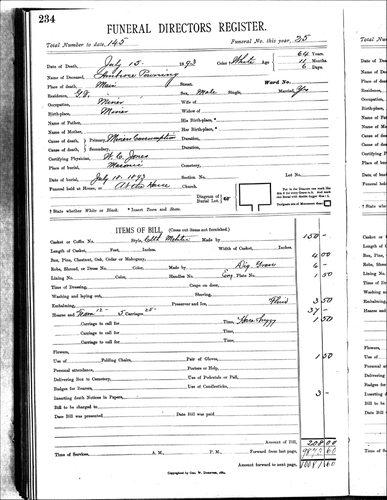 234
FUNERAL DIRECTORS REGISTER.
Total Number to date, 145 Funeral No. this year, 25
Date of Death, July 15. 1893 Color White Age 64 Years 11 Months 6 Days
Name of Deceased,
Place of death, Main Street, Ward No.
Residence, Male Single, Married, Yes
Occupation, Miner Wife of
Birthplace, Widow of
Name of Father, His Birth-place,
Name of Mother, Her Birth-place,
Cause of death, Primary, Miners Consumption Duration,
Cause of death, Secondary, Duration,
Certifying Physician, W. C. Jones
Place of burial, Masonic Cemetery,
Date of burial, July 18. 1893 Section No. Lot No.
Funeral held at House, At the House Church.
Diagram of Burial Lot.
† State whether White or Black. * Insert Town and State.
ITEMS OF BILL. (Cross out items not furnished.)
Casket or Coffin No. Style, Cloth Made by 150 -
Length of Casket, Feet, Inches. Width of Casket, Inches.
Box, Pine, Chestnut, Oak, Cedar or Mahogany, 4 00
Robe, Shroud, or Dress No. Color, Made by Dig Grave 6 -
Lining No. Color, Handles No. Eng Plate No. 1 50
Time of Dressing, Corps on door,
Washing and laying out, Shaving,
Embalming, Preserver and Ice, Fluid 3 50
Hearse and Team 12 - 5 Carriages 25 - 37 -
Carriage to call for Time, Horse Buggy 1 50
Carriage to call for Time,
Carriage to call for Time,
Flowers,
Use of Folding Chairs, Pair of Gloves, 1 50
Personal attendance, Porters or Help,
Delivering Box to Cemetery, Use of Pedestals or Pall,
Badges for Bearers, Use of Candlesticks,
Inserting death Notices in Papers, 3 -
Bill to be charged to
Date Bill was presented Date Bill was paid
Amount of Bill, 208 00
Time of Services, A. M., P. M., Forward from last page,
Amount forward to next page,